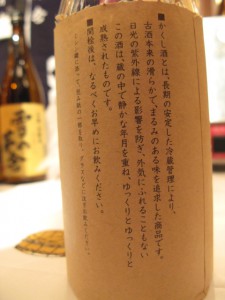 ■かくし酒とは、長期の安定した冷蔵管理により、
古酒本来の滑らかで、まるみのある味を追求した商品です。
日光の紫外線による影響を防ぎ、外気にふれることもない
この酒は、蔵の中で静かな年月を重ね、ゆっくりとゆっくりと
成熟されたものです。
■開栓後は、なるべくお早めにお飲みください。